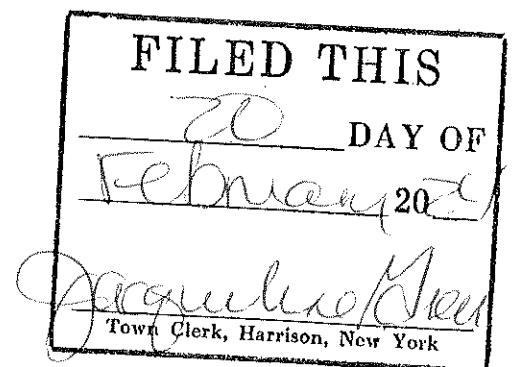 FILED THIS
20 DAY OF
February 20
Jacqueline Greer
Town Clerk, Harrison, New York